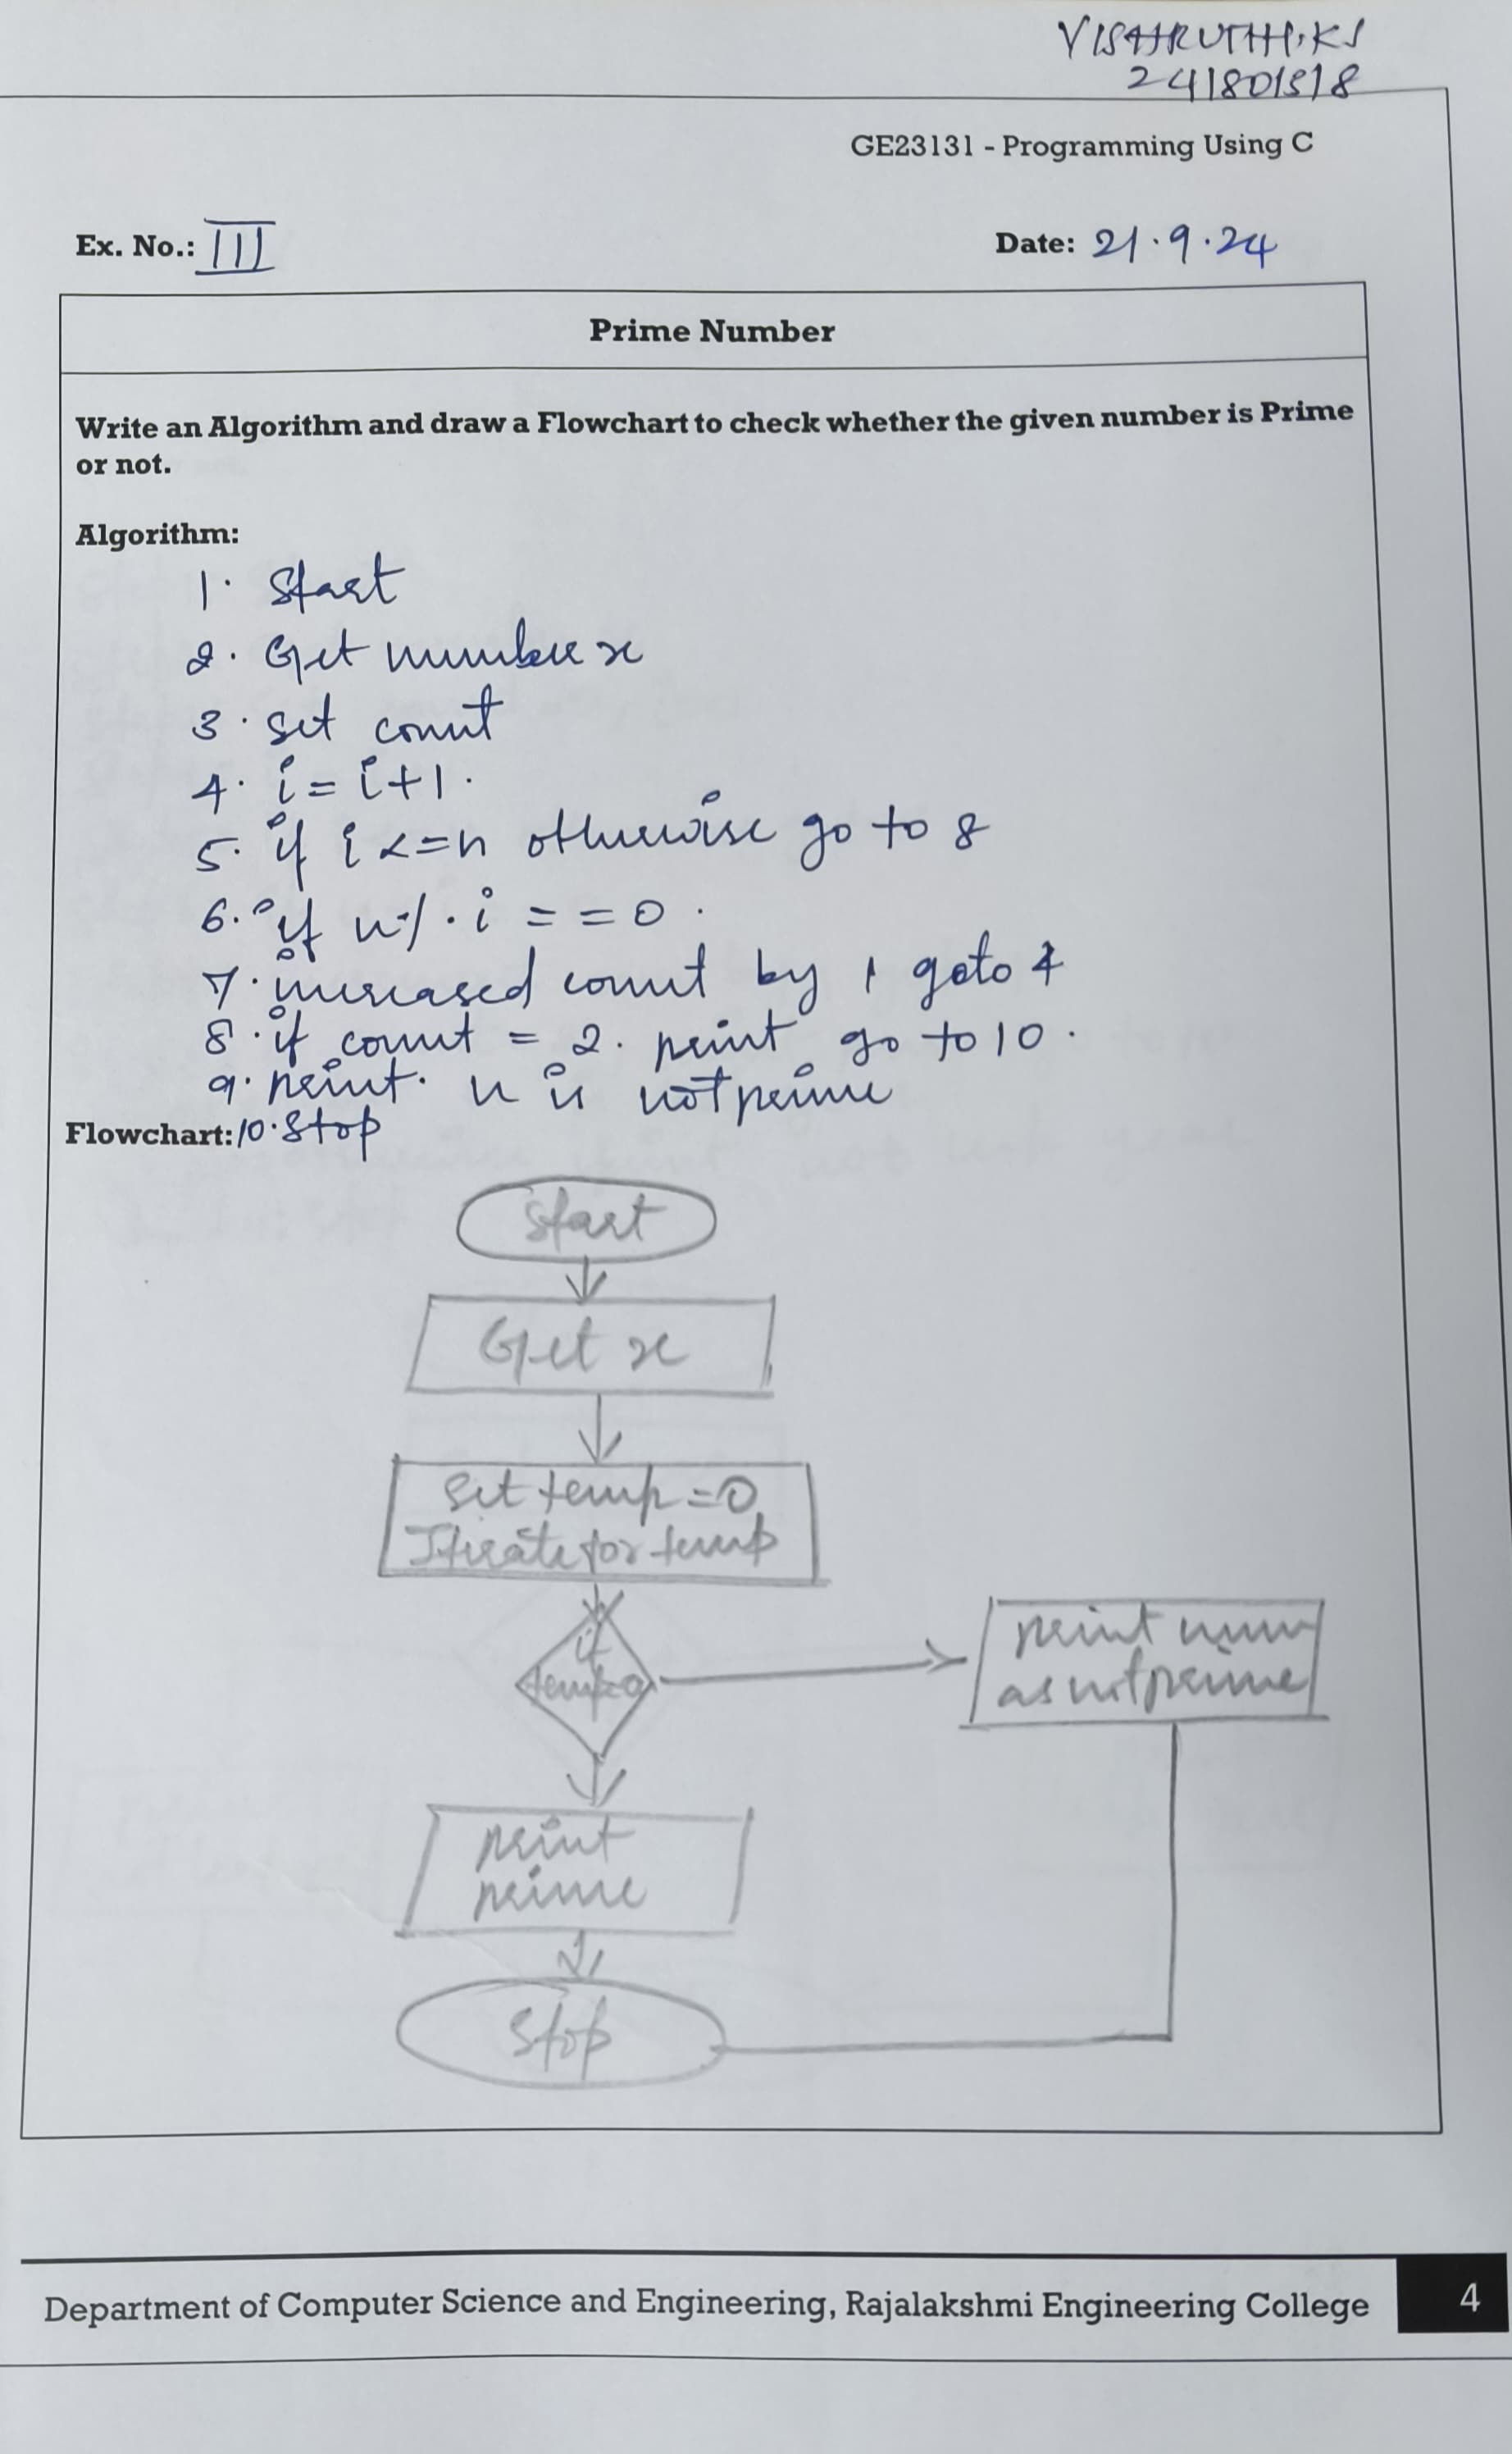 VISHRUTHH.KS
241801318
GE23131 - Programming Using C
Ex. No.: III
Date: 21.9.24
Prime Number
Write an Algorithm and draw a Flowchart to check whether the given number is Prime
or not.
Algorithm:
1. Start
2. Get number x
3. set count
4. i = i+1.
5. if i <=n otherwise go to 8
6. if n % i = = 0.
7. increased count by 1 goto 4
8. if count = 2. print go to 10.
9. print. n is not prime
Flowchart: 10. Stop
Start
Get x
Set temp=0
Iterate for temp
if
print num
as not prime
print
prime
Stop
Department of Computer Science and Engineering, Rajalakshmi Engineering College
4